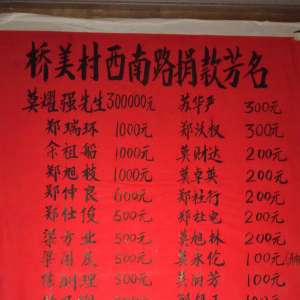 桥美村西南路捐款芳名
莫耀强先生300000元 苏华声 300元
郑瑞环 1000元 郑汝权 300元
余祖船 1000元 莫财达 200元
郑旭枝 1000元 莫卓英 200元
郑仲良 600元 郑桂行 200元
郑仕俊 500元 郑灶电 200元
梁方业 500元 莫旭林 200元
梁国辰 500元 莫永伦 100元
陈润理 500元 莫润芳 100元